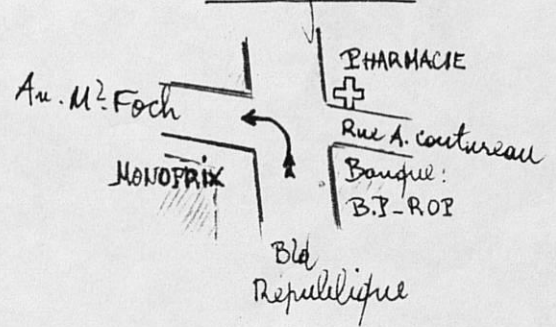 PHARMACIE
Av. Mal. Foch
Rue A. coutureau
MONOPRIX
Banque:
B.P-ROP
Bld
République